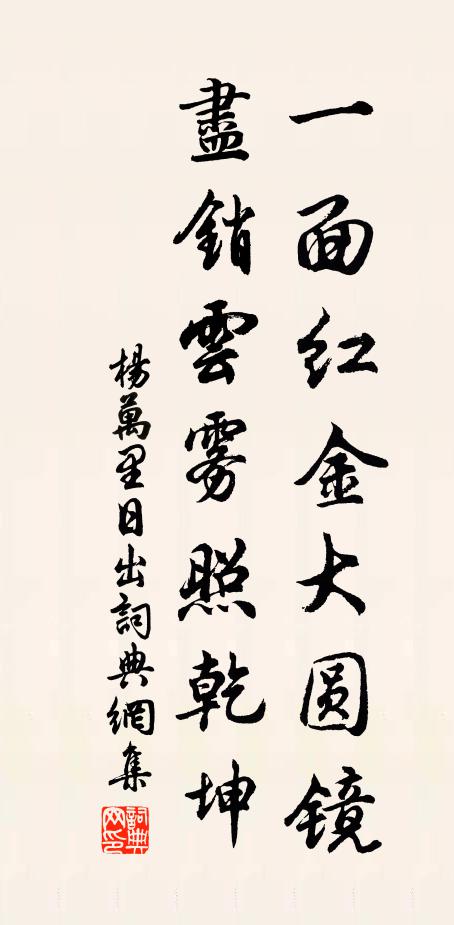 一面红金大圆镜
盡銷雲雾照乾坤
楊萬里日出詞典網集
詞典网印